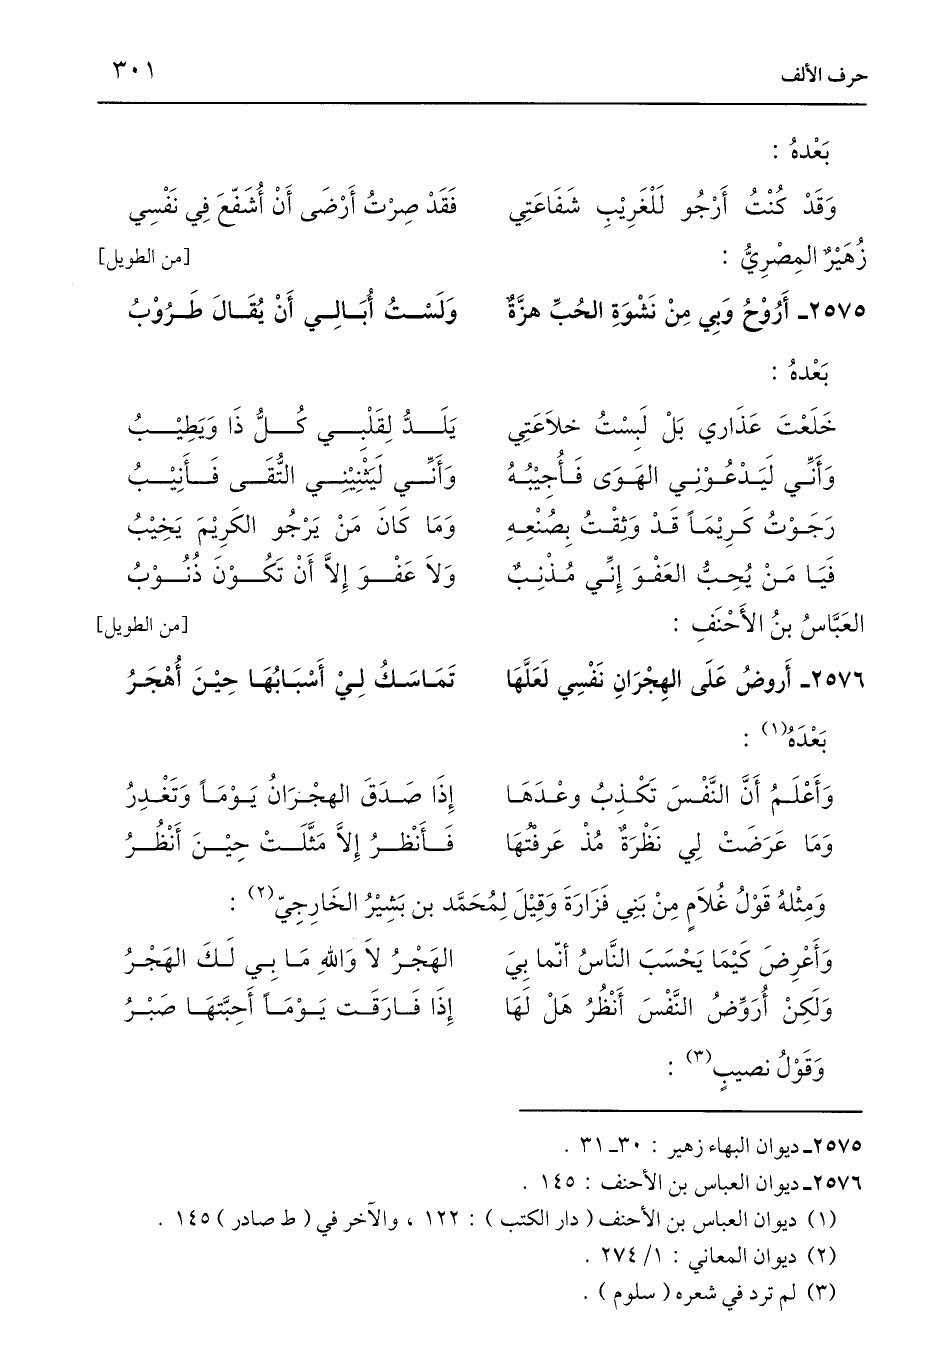 حرف الألف ٣٠١
بَعْدهُ :
وَقَدْ كُنْتُ أَرْجُو لَلْغَرِيْبِ شَفَاعَتِي فَقَدْ صِرْتُ أَرْضَى أَنْ أُشَفّعَ فِي نَفْسِي
زُهَيْرٌ المِصْرِيُّ : [من الطويل]
٢٥٧٥ـ أَرُوْحُ وَبِي مِنْ نَشْوَةِ الحُبِّ هزَّةٌ وَلَسْتُ أُبَالِي أَنْ يُقَالَ طَرُوْبُ
بَعْدهُ :
خَلَعْتَ عَذَاري بَلْ لَبِسْتُ خلاَعَتِي يَلَدُّ لِقَلْبِي كُلُّ ذَا وَيَطِيْبُ
وَأَنِّي لَيَدْعُوْنِي الهَوَى فَأُجِيْبُهُ وَأَنِّي لَيَثْنِيْنِي التُّقَى فَأَنِيْبُ
رَجَوْتُ كَرِيْمَاً قَدْ وَثِقْتُ بِصُنْعِهِ وَمَا كَانَ مَنْ يَرْجُو الكَرِيْمَ يَخِيْبُ
فَيَا مَنْ يُحِبُّ العَفْوَ إِنِّي مُذْنِبٌ وَلاَ عَفْوَ إِلاَّ أَنْ تَكُوْنَ ذُنُوْبُ
العَبَّاسُ بنُ الأَحْنَفِ : [من الطويل]
٢٥٧٦ـ أَروضُ عَلَى الهِجْرَانِ نَفْسِي لَعَلَّهَا تَمَاسَكُ لِيْ أَسْبَابُهَا حِيْنَ أُهْجَرُ
بَعْدَهُ(١) :
وَأَعْلَمُ أَنَّ النَّفْسَ تَكْذِبُ وعْدَهَا إِذَا صَدَقَ الهِجْرَانُ يَوْمَاً وَتَغْدِرُ
وَمَا عَرَضَتْ لِي نَظْرَةٌ مُذْ عَرفْتُهَا فَأَنْظرُ إِلاَّ مَثَّلَتْ حِيْنَ أَنْظُرُ
وَمِثْلهُ قَوْلُ غُلاَمٍ مِنْ بَنِي فَزَارَةَ وَقِيْلَ لِمُحَمَّد بن بَشِيْرُ الخَارِجِيّ(٢) :
وَأَعْرِضَ كَيْمَا يَحْسَبَ النَّاسُ أنّما بِيَ الهَجْرُ لاَ وَاللهِ مَا بِي لَكَ الهَجْرُ
وَلَكِنْ أُرَوِّضُ النَّفْسَ أَنْظُرُ هَلْ لَهَا إِذَا فَارَقَت يَوْمَاً أَحِبَّتهَا صَبْرُ
وَقَوْلُ نصيبٍ(٣) :
٢٥٧٥ـ ديوان البهاء زهير : ٣٠ـ ٣١ .
٢٥٧٦ـ ديوان العباس بن الأحنف : ١٤٥ .
(١) ديوان العباس بن الأحنف ( دار الكتب ) : ١٢٢ ، والآخر في ( ط صادر ) ١٤٥ .
(٢) ديوان المعاني : ١/ ٢٧٤ .
(٣) لم ترد في شعره ( سلوم ) .